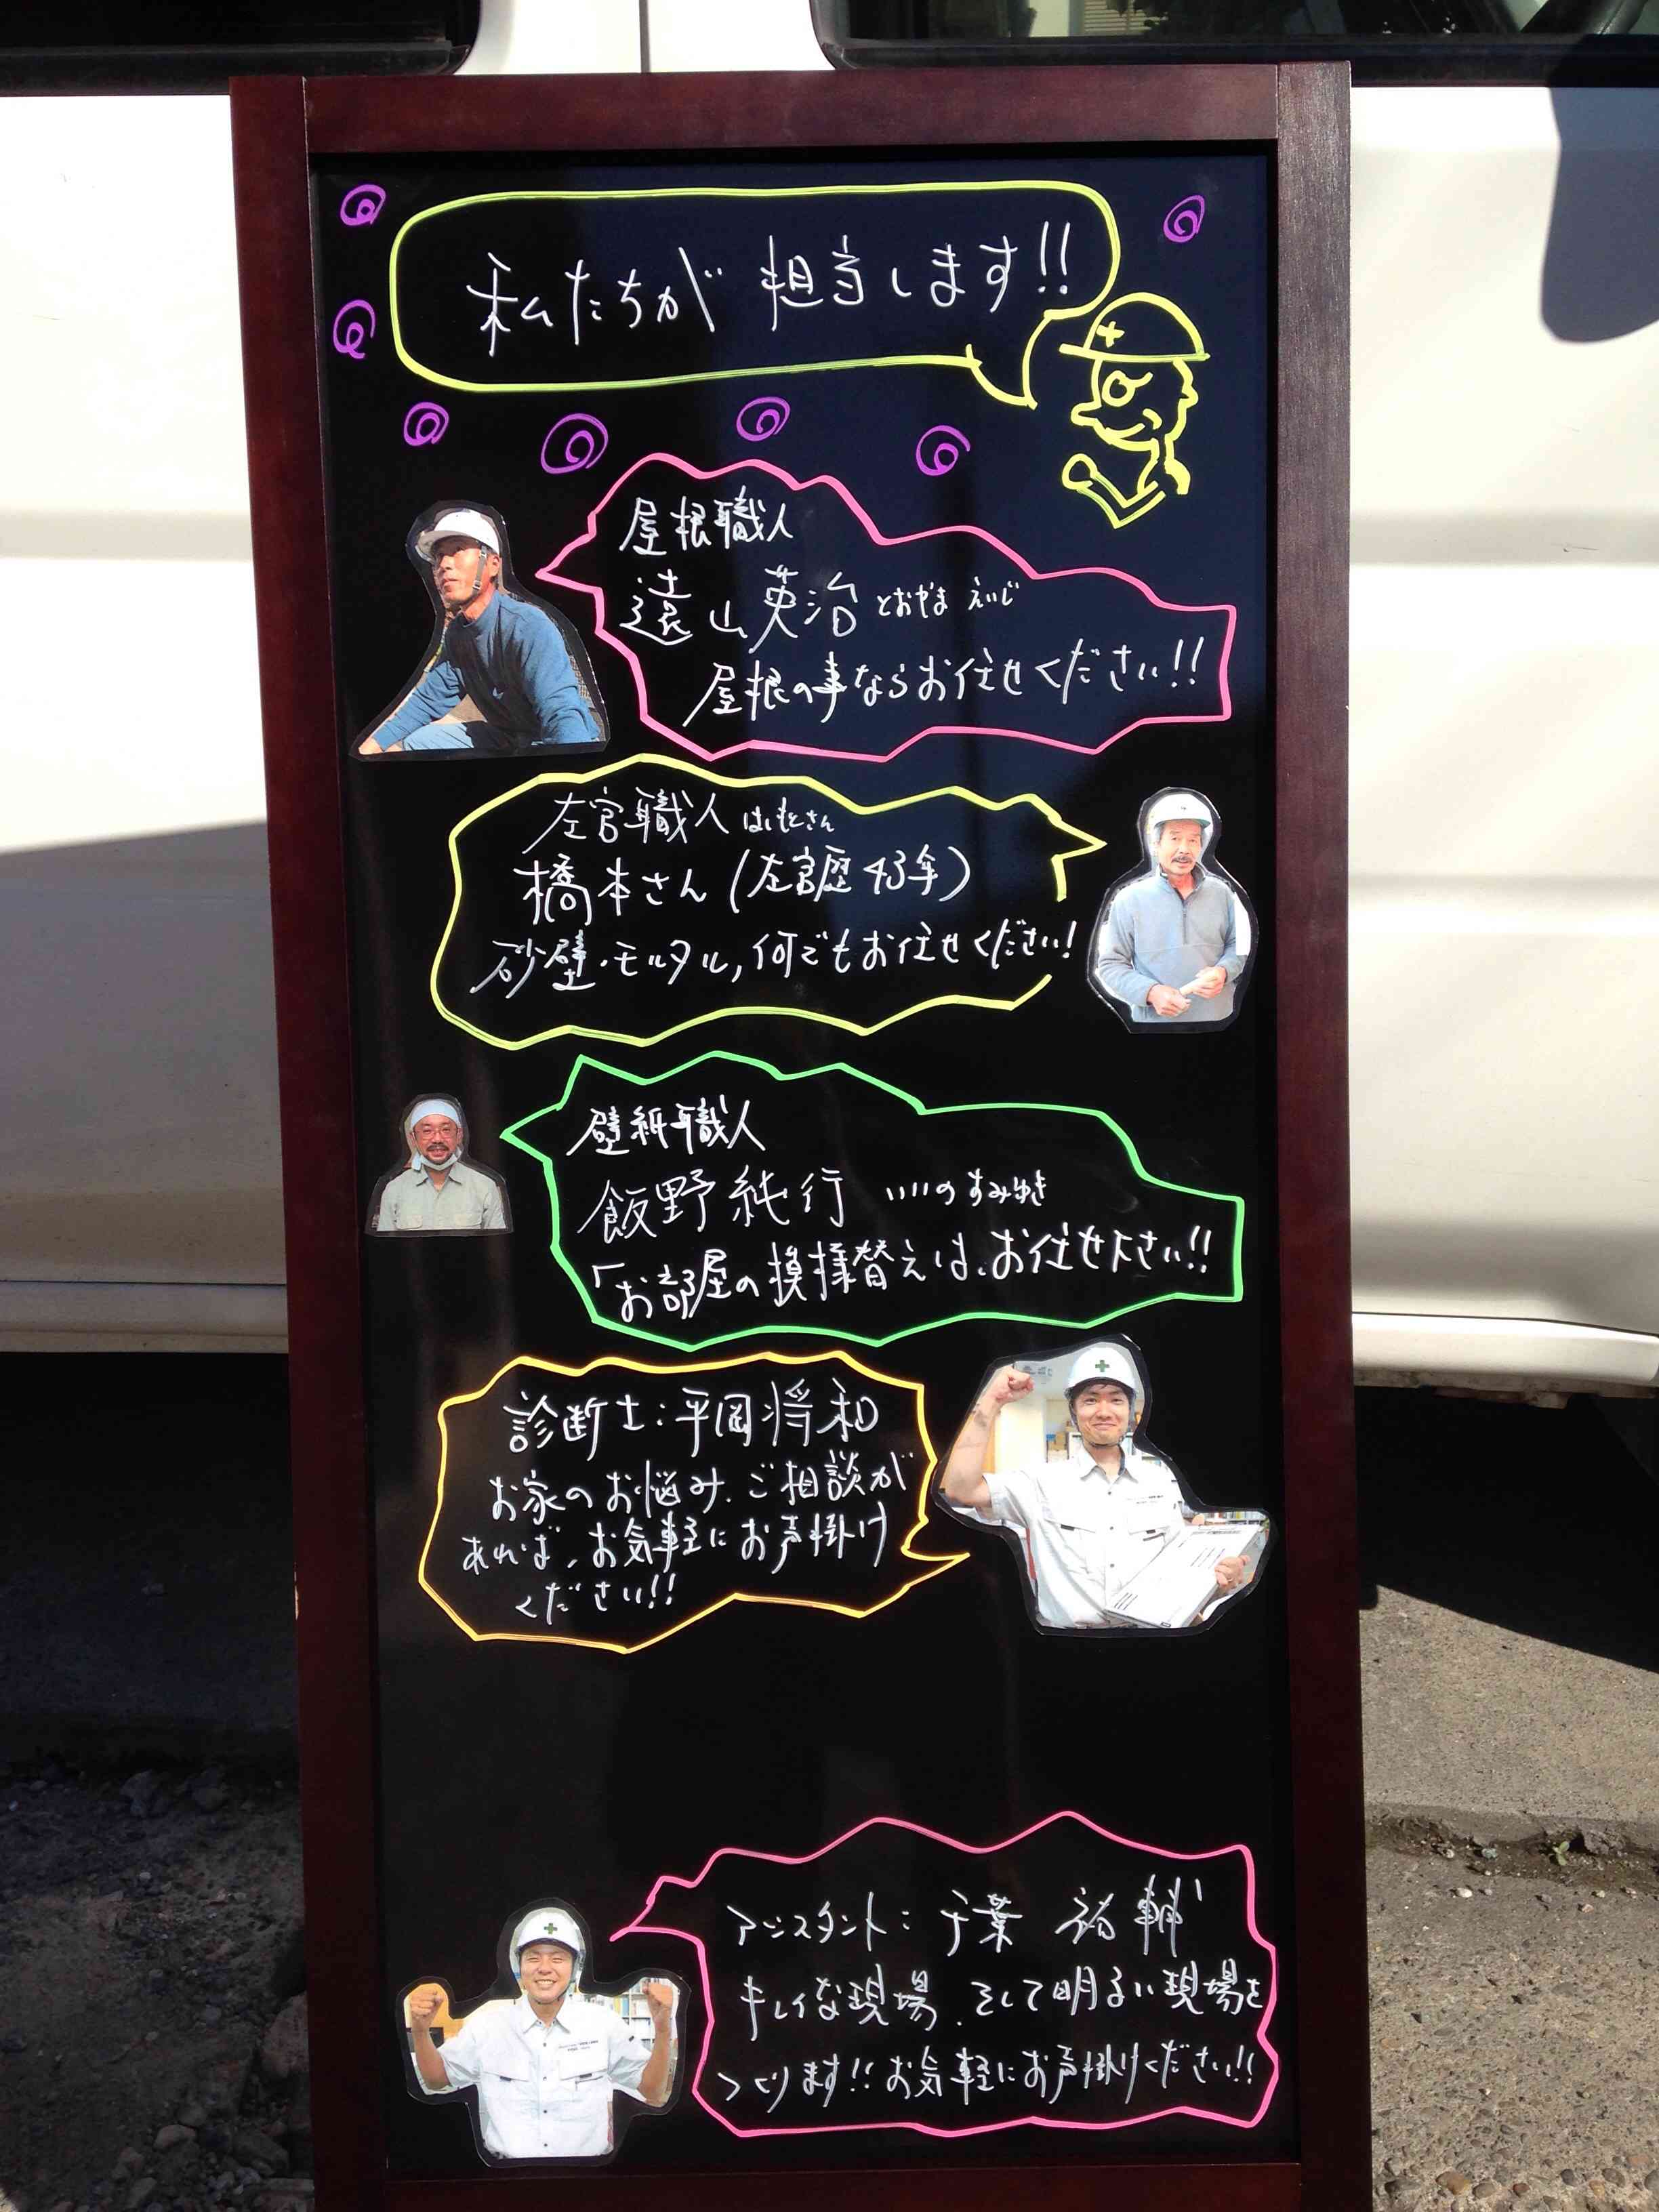 私たちが担当します!!
屋根職人
遠山英治 とおやま えいじ
屋根の事ならお任せください!!
左官職人 はしもとさん
橋本さん(左官歴43年)
砂壁・モルタル,何でもお任せください!
壁紙職人
飯野純行 いいの すみゆき
「お部屋の模様替えは、お任せ下さい!!
診断士:平岡将和
お家のお悩み、ご相談が
あれば、お気軽にお声掛け
ください!!
アシスタント:千葉 裕輔
キレイな現場、そして明るい現場を
つくります!!お気軽にお声掛けください!!